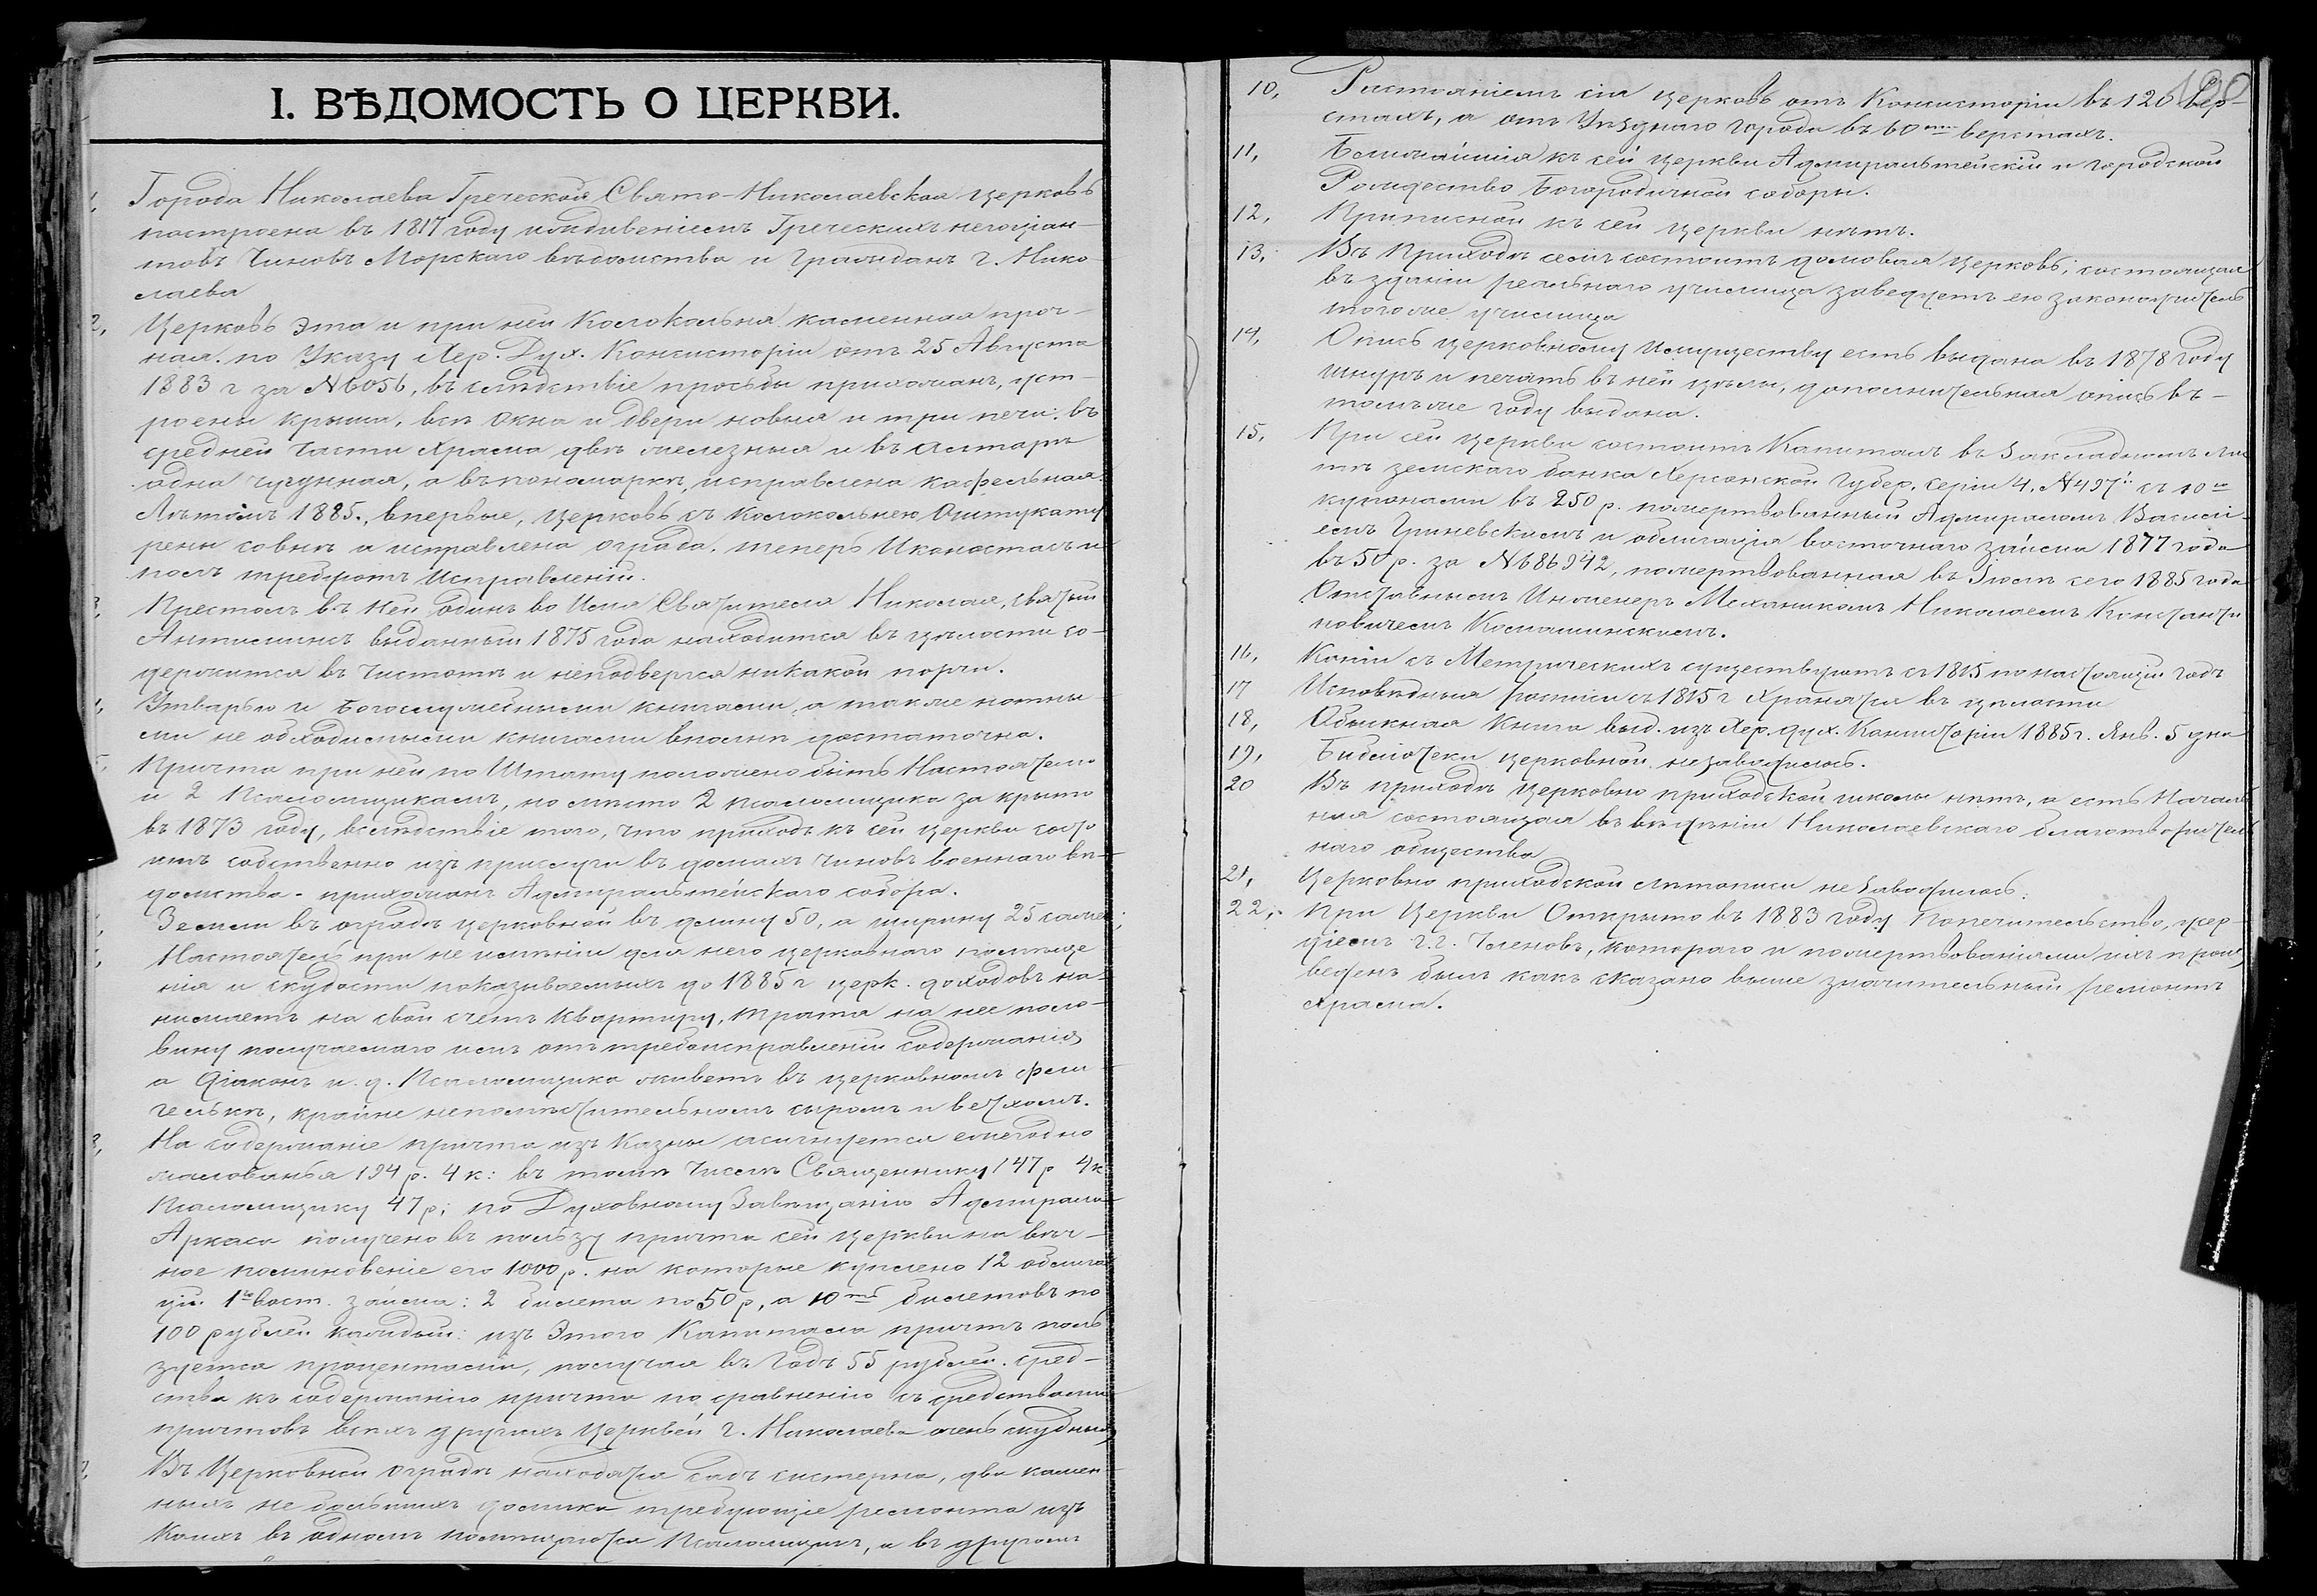 I. ВѢДОМОСТЬ О ЦЕРКВИ.
1, Города Николаева Греческой Свято-Николаевская церковь
построена въ 1817 году иждивеніемъ Греческихъ негоціан-
товъ Чиновъ Морскаго вѣдомства и Гражданъ г. Нико-
лаева
2, Церковь эта и при ней Колокольня каменная проч-
ная. по Указу Хер. Дух. Консисторіи отъ 25 Августа
1883 г за N 6056, въ слѣдствіе просьбы прихожанъ, уст-
роены крыша, всѣ окна и двери новыя и три печи: въ
средней части Храма двѣ железныя и въ Алтарѣ
одна чугунная, а въ пономаркѣ, исправлена кафельная.
Лѣтомъ 1885., впервые, церковь съ колокольнею Оштукату
рены совнѣ и исправлена ограда. теперь Иконостасъ и
полъ требуютъ Исправленій.
3, Престолъ въ ней одинъ во Имя Святителя Николая, Святый
Антиминсъ выданный 1875 года находится въ цѣлости со-
держится въ чистотѣ и неподвергся никакой порчи.
4, Утварью и Богослужебными книгами, а также нотны
ми не обходимыми книгами вполнѣ достаточна.
5, Причта при ней по Штату положено быть Настоятелю
и 2 Псаломщикамъ, но мѣсто 2 псаломщика за крыто
въ 1873 году, вслѣдствіе того, что приходъ къ сей церкви состо
итъ собственно изъ прислуги въ домахъ чиновъ военнаго вѣ-
домства - прихожанъ Адмиралтейскаго собора.
Земли въ оградѣ церковной въ длину 50, а ширину 25 сажен;
Настоятель при не имѣніи для него церковнаго помѣще
нія и скудости показываемыхъ до 1885 г церк. доходовъ на-
нимаетъ на свой счетъ Квартиру, тратя на нее поло-
вину получаемаго имъ отъ требоисправленій содержанія,
а Діаконъ и. д. Псаломщика живетъ въ церковномъ фли-
гелькѣ, крайне непомѣстительномъ сыромъ и ветхомъ.
8, На содержаніе причта изъ Казны асигнуется ежегодно
жалованья 194 р. 4 к: въ томъ числѣ Священнику 147 р 4 к
Псаломщику 47 р; по Духовному Завѣщанію Адмирала
Аркаса получено въ пользу причта сей церкви на вѣч-
ное поминовеніе его 1000 р. на которые куплено 12 облига
цій. 1го вост. займа: 2 билета по 50 р, а 10ть билетовъ по
100 рублей каждый: изъ этого Капитала причтъ поль
зуется процентами, получая въ годъ 55 рублей. сред-
ства къ содержанію причта по сравненію съ средствами
причтовъ всѣхъ другихъ церквей г. Николаева очень скудны,
Въ Церковной оградѣ находятся садъ систерна, два камен
ныхъ не большихъ домика требующіе ремонта изъ
коихъ въ одномъ помѣщаются Псаломщикъ, а въ другомъ
10, Разстояніемъ сія церковь отъ Консисторіи въ 120 вер-
стахъ, а отъ Уѣзднаго города въ 60ти верстахъ.
11, Ближайшія къ сей церкви Адмиралтейскій и городской
Рождество Богородичной соборы.
12, Приписной къ сей церкви нѣтъ.
13, Въ Приходѣ семъ состоитъ домовая церковь; состоящая
въ зданіи реальнаго училища заведуетъ ею законоучитель
тогоже училища
14, Опись церковному Имуществу есть выдана въ 1878 году
шнуръ и печать въ ней цѣлы, дополнительная опись въ-
томъже году выдана.
15, При сей церкви состоитъ Капиталъ въ Закладномъ лис
тѣ земскаго банка Херсонской губер. серіи 4, N 497й съ 10ю
купонами въ 250 р. пожертвованный Адмираломъ Васілі-
емъ Гриневскимъ и облигація восточнаго займа 1877 года
въ 50 р. за N 686942, пожертвованная въ Іюлѣ сего 1885 года
Отставнымъ Инженеръ Механикомъ Николаемъ Константи
новичемъ
16, Копіи съ Метрическихъ существуютъ съ 1815 по настоящій годъ
17 Исповѣдныя росписи съ 1815 г Хранятся въ цѣлости
18, Обыскная книга выд. изъ Хер. дух. Консисторіи 1885 г. Янв. 5 дня
19, Библіотеки церковной незаводилось.
20 Въ приходѣ церковно приходской школы нѣтъ, а есть Началь
ная состоящая въ вѣденіи Николаевскаго благотворитель
наго общества
21, Церковно приходской лѣтописи не заводилось.
22, При Церкви Открыто въ 1883 году Попечительство, усер-
діемъ г.г. Членовъ, котораго и пожертвованіями ихъ произ
веденъ былъ какъ сказано выше значительный ремонтъ
храма.